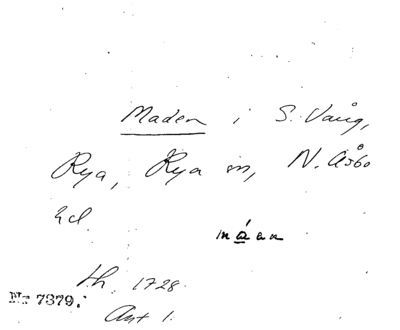 Maden i S. Vång,
Rya, Rya sn, N. Åsbo
hd.
máan
th. 1728.
No 7379.
Ant 1.